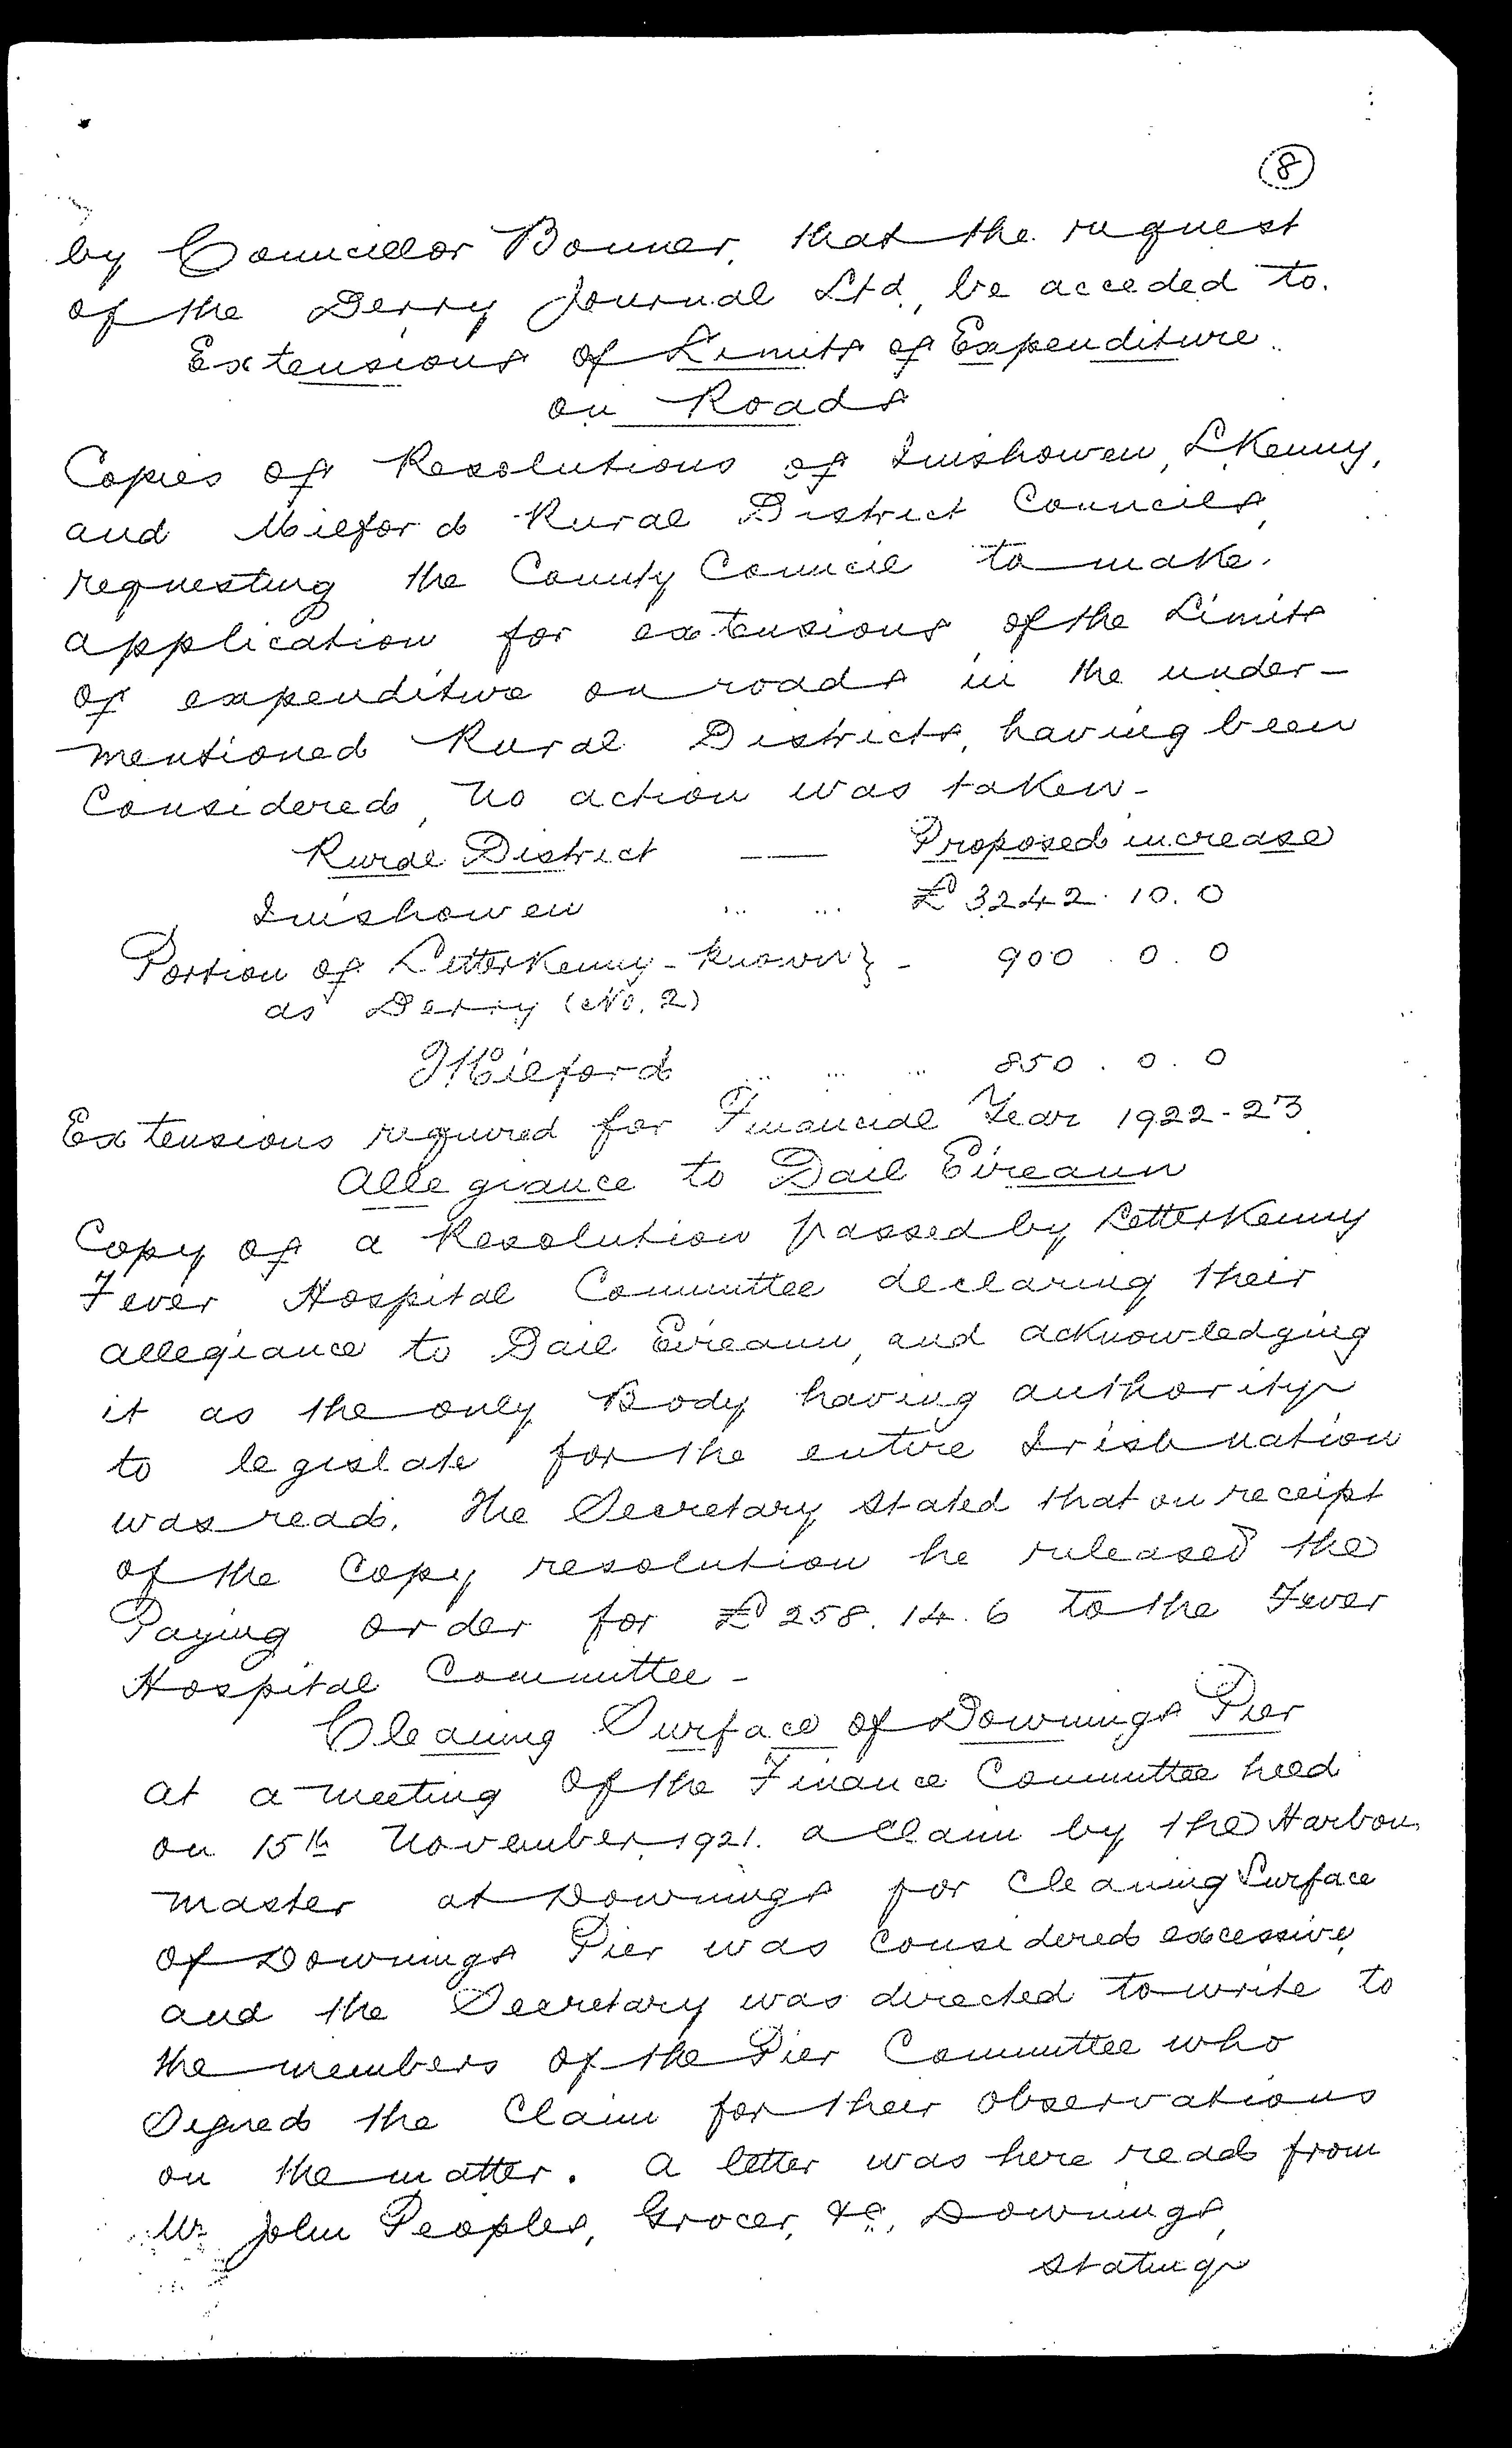 8
by Councillor Bonner, that the request
of the Derry Journal Ltd, be acceded to.
Extensions of Limits of Expenditure
on Roads
Copies of Resolutions of Inishowen, L'Kenny,
and Milford Rural District Councils,
requesting the County Council to make
application for extensions of the Limits
of expenditure on roads in the under-
mentioned Rural Districts, having been
Considered, no action was taken-
Rural District — Proposed increase
Inishowen ... ... £3242.10.0
Portion of Letterkenny - known } - 900.0.0
as Derry (No. 2)
Milford ... ... ... 850.0.0
Extensions required for Financial Year 1922-23
Allegiance to Dail Eireann
Copy of a Resolution passed by Letterkenny
Fever Hospital Committee declaring their
allegiance to Dail Eireann, and acknowledging
it as the only Body having authority
to legislate for the entire Irish nation
was read. The Secretary stated that on receipt
of the Copy resolution he released the
Paying order for £258.14.6 to the Fever
Hospital Committee -
Cleaning Surface of Downings Pier
At a meeting of the Finance Committee held
on 15th November, 1921. a claim by the Harbour
master at Downings for cleaning Surface
of Downings Pier was considered excessive,
and the Secretary was directed to write to
the members of the Pier Committee who
Signed the Claim for their observations
on the matter. A letter was here read from
Mr John Peoples, Grocer, &c, Downings,
stating